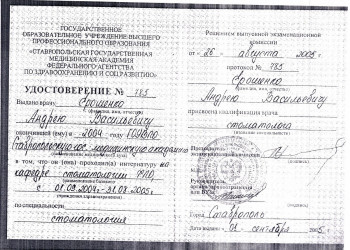 ГОСУДАРСТВЕННОЕ
ОБРАЗОВАТЕЛЬНОЕ УЧРЕЖДЕНИЕ ВЫСШЕГО
ПРОФЕССИОНАЛЬНОГО ОБРАЗОВАНИЯ
«СТАВРОПОЛЬСКАЯ ГОСУДАРСТВЕННАЯ
МЕДИЦИНСКАЯ АКАДЕМИЯ
ФЕДЕРАЛЬНОГО АГЕНТСТВА
ПО ЗДРАВООХРАНЕНИЮ И СОЦ РАЗВИТИЮ»
УДОСТОВЕРЕНИЕ № 783
Выдано врачу Ерошенко
(фамилия, имя, отчество)
Андрею Васильевичу
окончившей (ему) в 2004 году ГОУВПО
Ставропольскую гос. медицинскую академию
в том, что он (она) проходил(а) интернатуру на
кафедре стоматологии ФПО
с 01.09.2004г - 31.08.2005г
по специальности
стоматология
Решением выпускной экзаменационной
комиссии
от «26» августа 2005 г
протокол № 783
Ерошенко
(фамилия, имя, отчество)
Андрею Васильевичу
присвоена квалификация врача
стоматолога
Председатель
М.П.
Руководитель
Город Ставрополь
Дата выдачи 01 сентября 2005